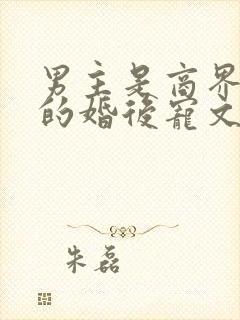 男主是商界
的婚後寵文
朱磊